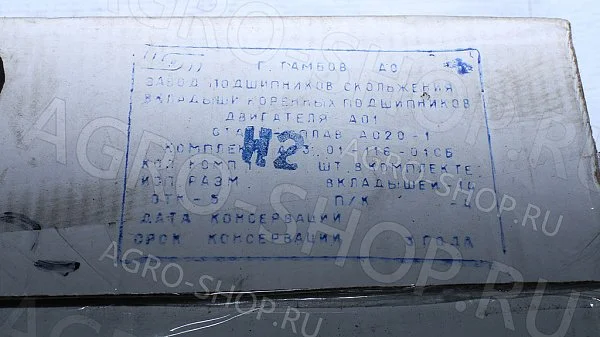 Г. ТАМБОВ АО
ЗАВОД ПОДШИПНИКОВ СКОЛЬЖЕНИЯ
ВКЛАДЫШИ КОРЕННЫХ ПОДШИПНИКОВ
ДВИГАТЕЛЯ А01
АО20-1
Н2
01-116-01СБ
ШТ. В КОМПЛЕКТЕ
ИЗП РАЗМ. ВКЛАДЫШЕЙ
ОТК-5 П/К
ДАТА КОНСЕРВАЦИИ
СРОК КОНСЕРВАЦИИ 3 ГОДА
AGRO-SHOP.RU
AGRO-SHOP.RU
AGRO-SHOP.RU